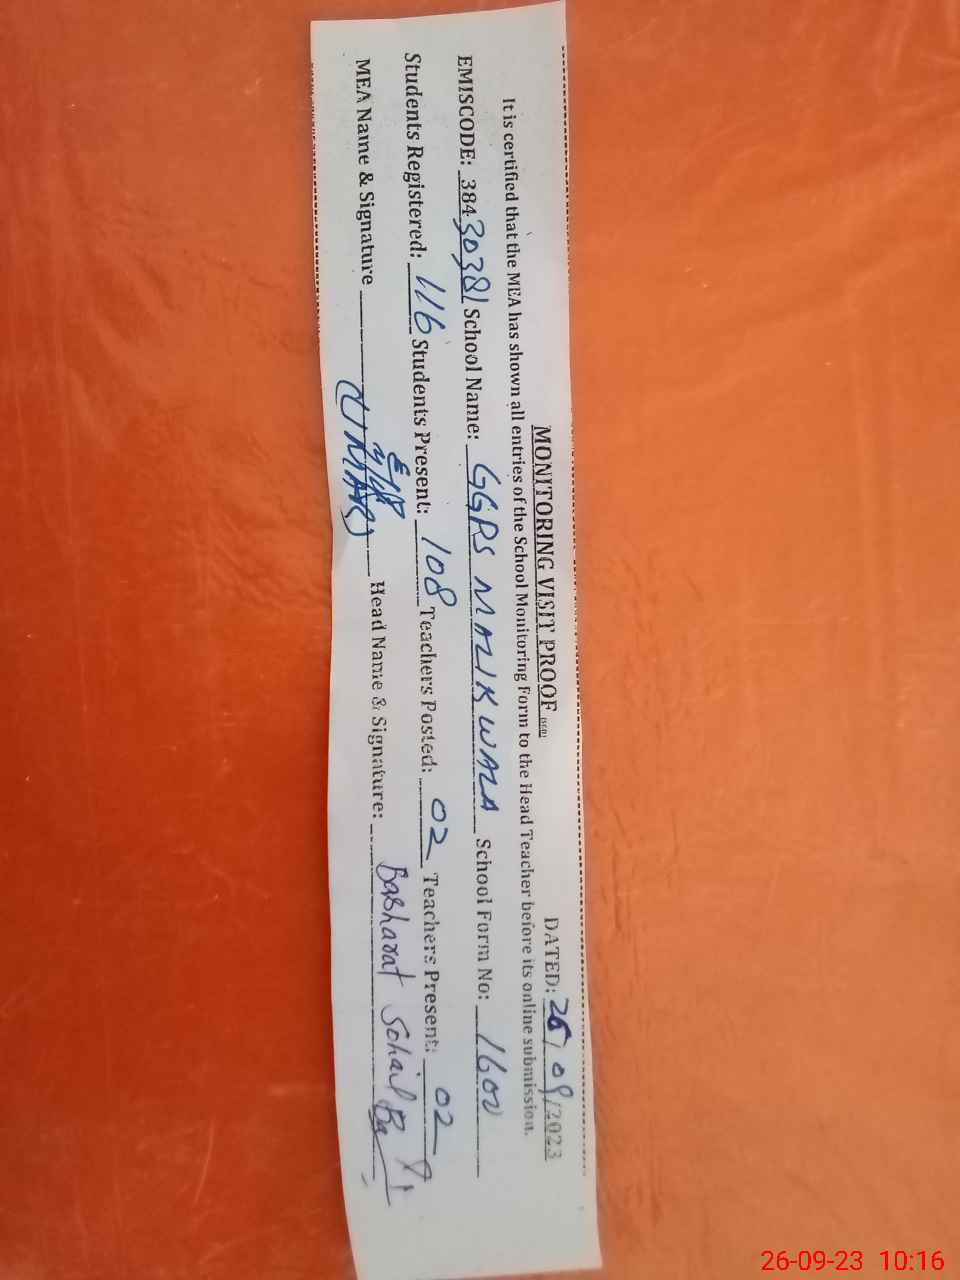 MONITORING VISIT PROOF
DATED: 26/09/2023
It is certified that the MEA has shown all entries of the School Monitoring Form to the Head Teacher before its online submission.
EMISCODE: 38430381 School Name: GGPS MALIKWALA School Form No: 1602
Students Registered: 116 Students Present: 108 Teachers Posted: 02 Teachers Present: 02
MEA Name & Signature (UMAR) Head Name & Signature: Basharat Sohail
26-09-23 10:16